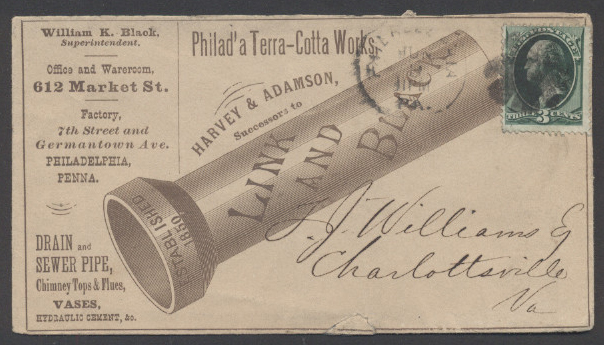 William K. Black,
Superintendent.
Office and Wareroom,
612 Market St.
Factory,
7th Street and
Germantown Ave.
PHILADELPHIA,
PENNA.
DRAIN and
SEWER PIPE,
Chimney Tops & Flues,
VASES,
HYDRAULIC CEMENT, &c.
Philad'a Terra-Cotta Works,
HARVEY & ADAMSON,
Successors to
LINK
AND
BLACK.
ESTABLISHED
1850.
U.S. POSTAGE
THREE 3 CENTS
J. Williams
Charlottsville
Va